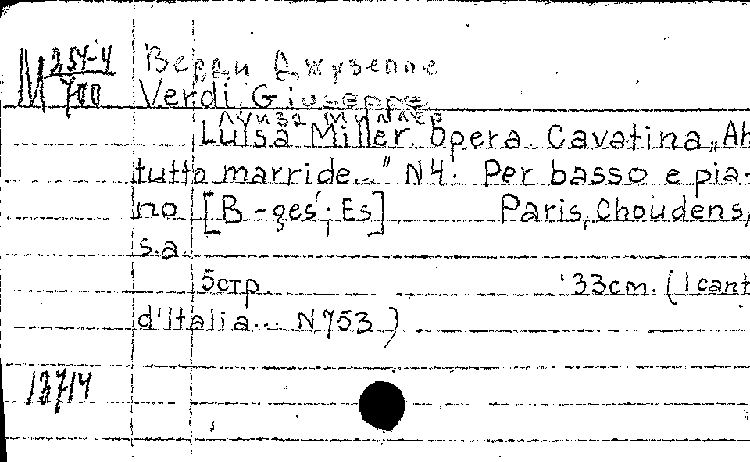 М 254-4/700
Верди Джузеппе
Verdi Giuseppe
Луиза Миллер
Luisa Miller opera. Cavatina „Ah
tutto marride..." N4. Per basso e pia-
no [B-ges'; Es] Paris, Choudens,
s.a.
5стр. 33cm. (I cant
d'Italia... N753)
13714